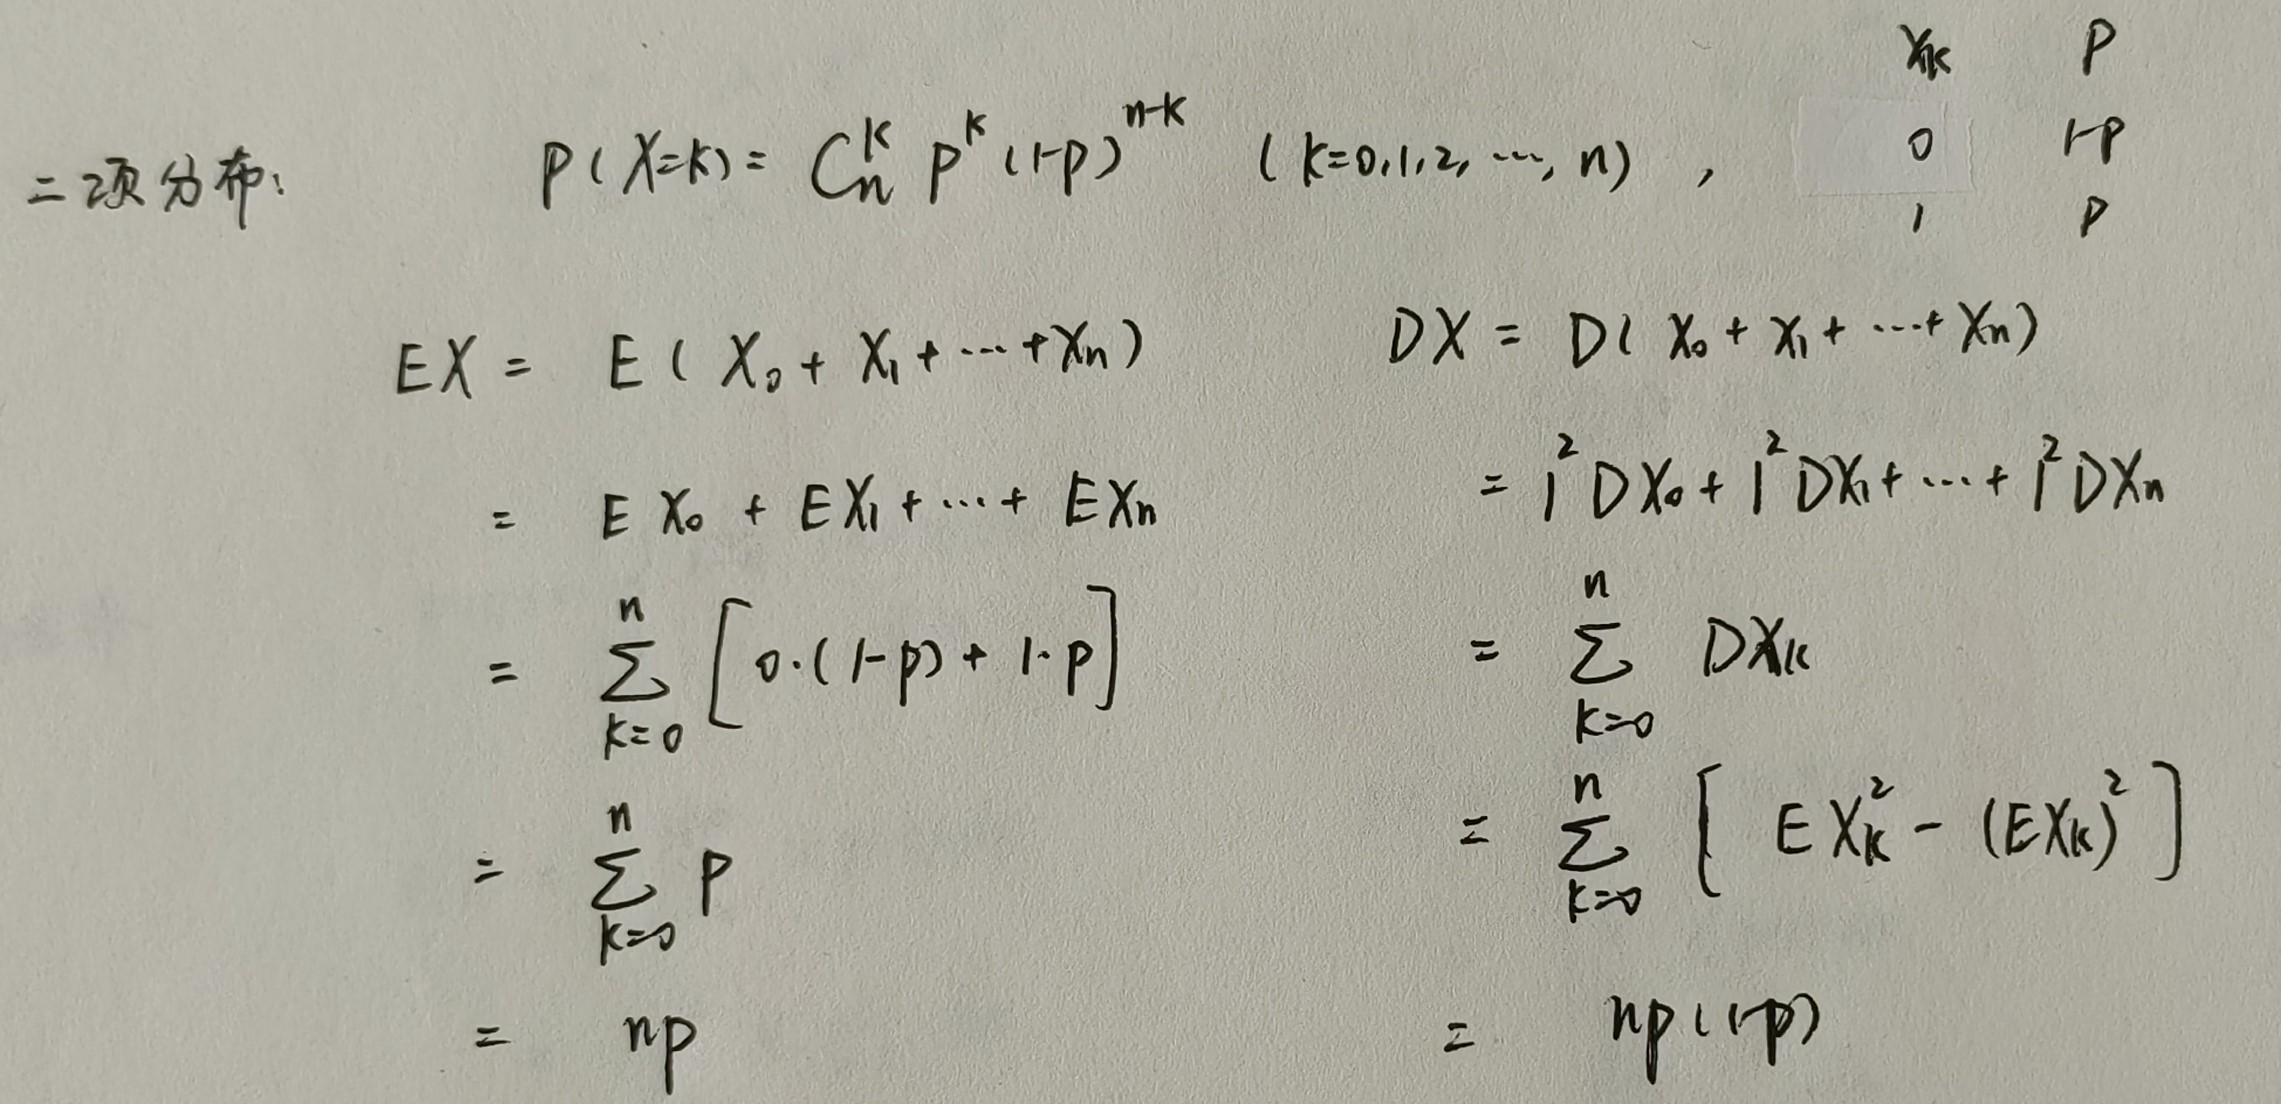 X_k P
二项分布: P(X=k) = C_n^k p^k (1-p)^{n-k} (k=0,1,2,…,n), 0 1-p
1 p
EX = E(X_0 + X_1 + … + X_n) DX = D(X_0 + X_1 + … + X_n)
= EX_0 + EX_1 + … + EX_n = 1^2 DX_0 + 1^2 DX_1 + … + 1^2 DX_n
= \sum_{k=0}^{n} [0·(1-p) + 1·p] = \sum_{k=0}^{n} DX_k
= \sum_{k=0}^{n} p = \sum_{k=0}^{n} [EX_k^2 - (EX_k)^2]
= np = np(1-p)